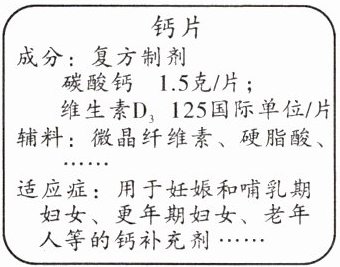 钙片
成分：复方制剂
碳酸钙 1.5克/片；
维生素D₃ 125国际单位/片
辅料：微晶纤维素、硬脂酸、
……
适应症：用于妊娠和哺乳期
妇女、更年期妇女、老年
人等的钙补充剂……